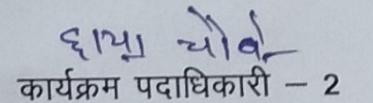 छाया चौबे
कार्यक्रम पदाधिकारी – 2